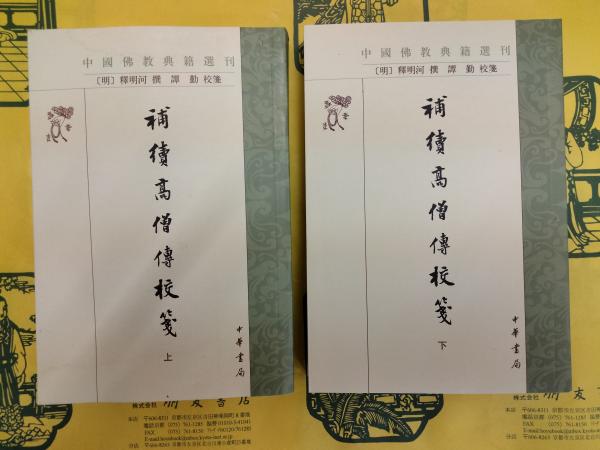 中國佛教典籍選刊
〔明〕釋明河 撰 譚勤 校箋
補續高僧傳校箋
上
中華書局
中國佛教典籍選刊
〔明〕釋明河 撰 譚勤 校箋
補續高僧傳校箋
下
中華書局
株式会社 朋友書店
本店 〒606-8311 京都市左京区吉田神楽岡町8番地
電話京都 (075) 761-1285
FAX (075) 761-8150
支店 〒606-8265
株式会社
本店 〒606-8311 京都市左京区吉田神楽岡町
電話京都 (075) 761-1285
FAX (075) 761-8150
支店 〒606-8265